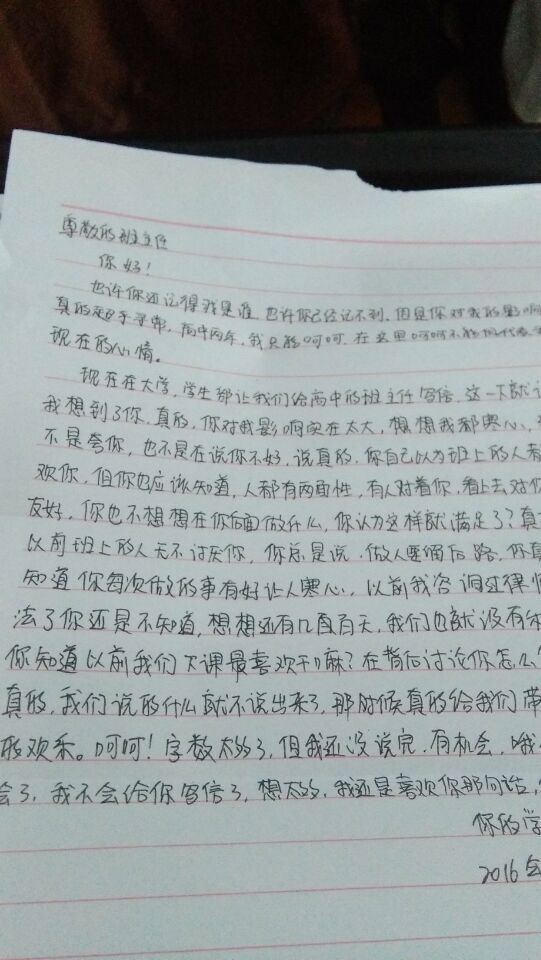 尊敬的班主任
你好！
也许你还记得我是谁，也许你已经记不到，但是你对我的影响
真的是 高中两年，我只能呵呵，在这里呵呵不能代表
现在的心情。
现在在大学，学生部让我们给高中的班主任写信，这一下就
我想到了你，真的，你对我影响实在太大，想想我都寒心，
不是夸你，也不是在说你不好，说真的，你自己以为班上的人都
欢你，但你也应该知道，人都有两面性，有人对着你，看上去对你
友好，你也不想想在你后面做什么，你认为这样就满足了？真
以前班上的人无不讨厌你，你总是说，做人要留后路，你真
知道你每次做的事有好让人寒心，以前我咨询过律师
法了你还是不知道，想想还有几百天，我们也就没有
你知道以前我们下课最喜欢干嘛？在背后讨论你怎么
真的，我们说的什么就不说出来了，那时候真的给我们带
的欢乐。呵呵！字数太多了，但我还没说完，有机会，哦
会了，我不会给你写信了，想太多，我还是喜欢你那句话，
你的学
2016